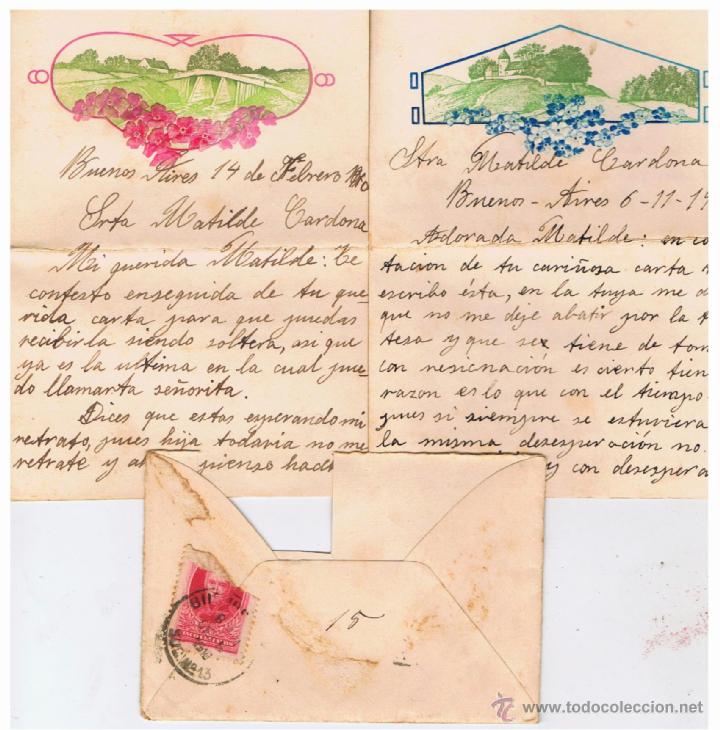 Buenos Aires 14 de Febrero
Srta Matilde Cardona
Mi querida Matilde: Te
contesto enseguida de tu que-
rida carta para que puedas
recibirla siendo soltera, asi que
ya es la ultima en la cual pue-
do llamarta señorita.
Dices que estas esperando mi
retrato, pues hija todavia no me
retrate y pienso
Stra Matilde Cardona
Buenos-Aires 6-11-19
Adorada Matilde: en co
tacion de tu cariñosa carta
escribo ésta, en la tuya me
que no me deje abatir por la t
tesa y que se tiene de tom
con resignación es ciento tien
razon es lo que con el tiempo
pues si siempre se estuviera
la misma desesperación no
y con desespera
15
www.todocoleccion.net